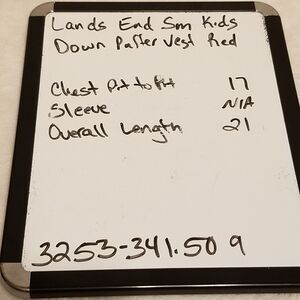 Lands End Sm Kids
Down Puffer Vest Red
Chest Pit to Pit 17
Sleeve N/A
Overall Length 21
3253-341.50 9